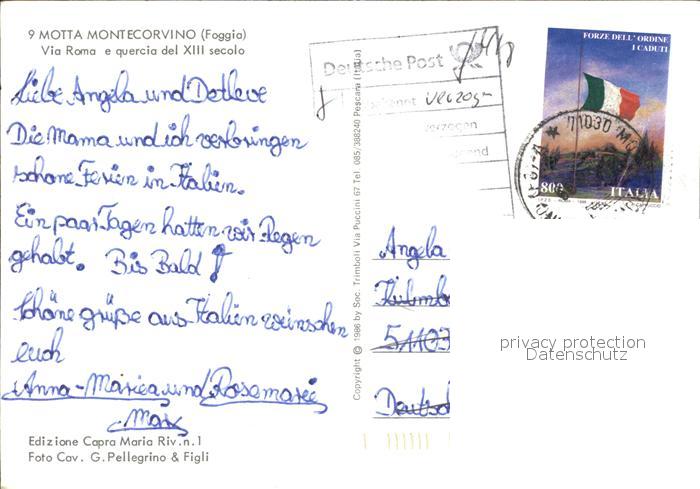 9 MOTTA MONTECORVINO (Foggia)
Via Roma e quercia del XIII secolo
Liebe Angela und Detleve
Die Mama und ich verbringen
schöne Ferien in Italien.
Ein paar Tagen hatten wir Regen
gehabt. Bis Bald!
Schöne grüße aus Italien wünschen
euch
Anna-Maria und Rosemarie
Max
Edizione Capra Maria Riv.n.1
Foto Cav. G. Pellegrino & Figli
Copyright © 1986 by Soc. Trimboli Via Puccini 67 Tel. 085/388240 Pescara (Italia)
Deutsche Post
verzogen
FORZE DELL'ORDINE
I CADUTI
800 ITALIA
71030
Angela
51103
privacy protection
Datenschutz